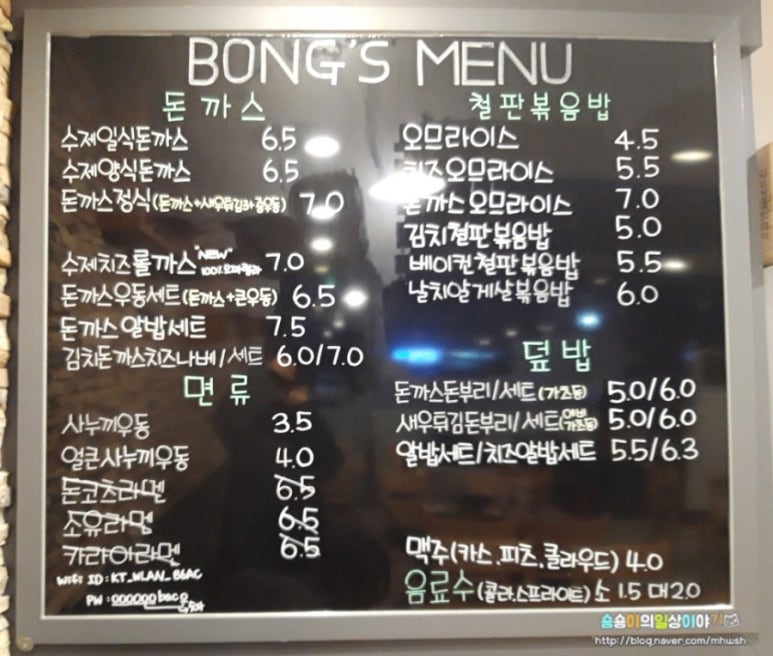 BONG'S MENU
돈까스
수제일식돈까스 6.5
수제양식돈까스 6.5
돈까스정식(돈까스+새우튀김3+중우동) 7.0
수제치즈롤까스 "NEW" 100% 모짜렐라 7.0
돈까스우동세트(돈까스+큰우동) 6.5
돈까스알밥세트 7.5
김치돈까스치즈나베/세트 6.0/7.0
면류
사누끼우동 3.5
얼큰사누끼우동 4.0
돈코츠라멘 6.5
쇼유라멤 6.5
카라이라멘 6.5
WiFi ID: KT_WLAN_B6AC
PW:
철판볶음밥
오므라이스 4.5
치즈오므라이스 5.5
돈까스오므라이스 7.0
김치철판볶음밥 5.0
베이컨철판볶음밥 5.5
날치알게살볶음밥 6.0
덮밥
돈까스돈부리/세트 5.0/6.0
새우튀김돈부리/세트 5.0/6.0
알밥세트/치즈알밥세트 5.5/6.3
맥주(카스.피츠.클라우드) 4.0
음료수(콜라.스프라이트) 소 1.5 대 2.0
숑숑이의일상이야기
http://blog.naver.com/mhwsh